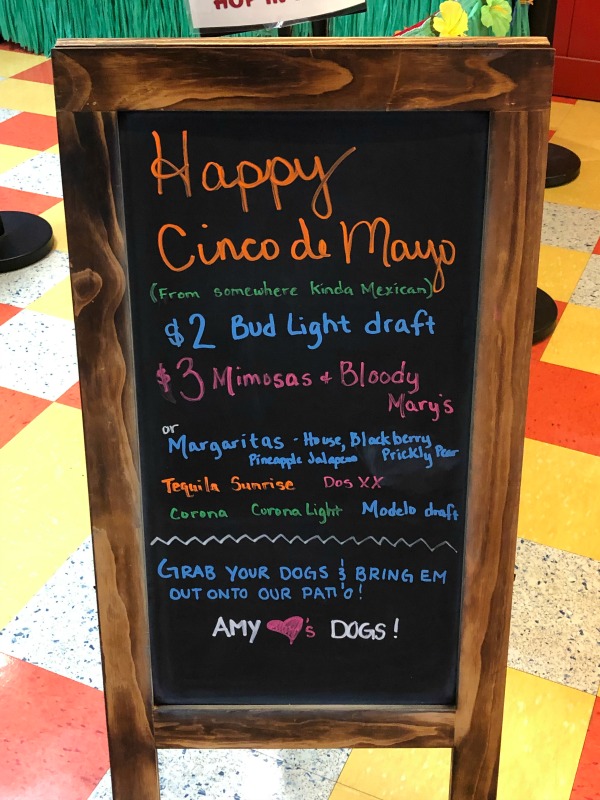 HOP IN
Happy
Cinco de Mayo
(From somewhere Kinda Mexican)
$2 Bud Light draft
$3 Mimosas + Bloody
Mary's
or
Margaritas - House, Blackberry
Pineapple Jalapeno Prickly Pear
Tequila Sunrise Dos XX
Corona Corona Light Modelo draft
GRAB YOUR DOGS & BRING EM
OUT ONTO OUR PATIO!
AMY ♥'s DOGS!